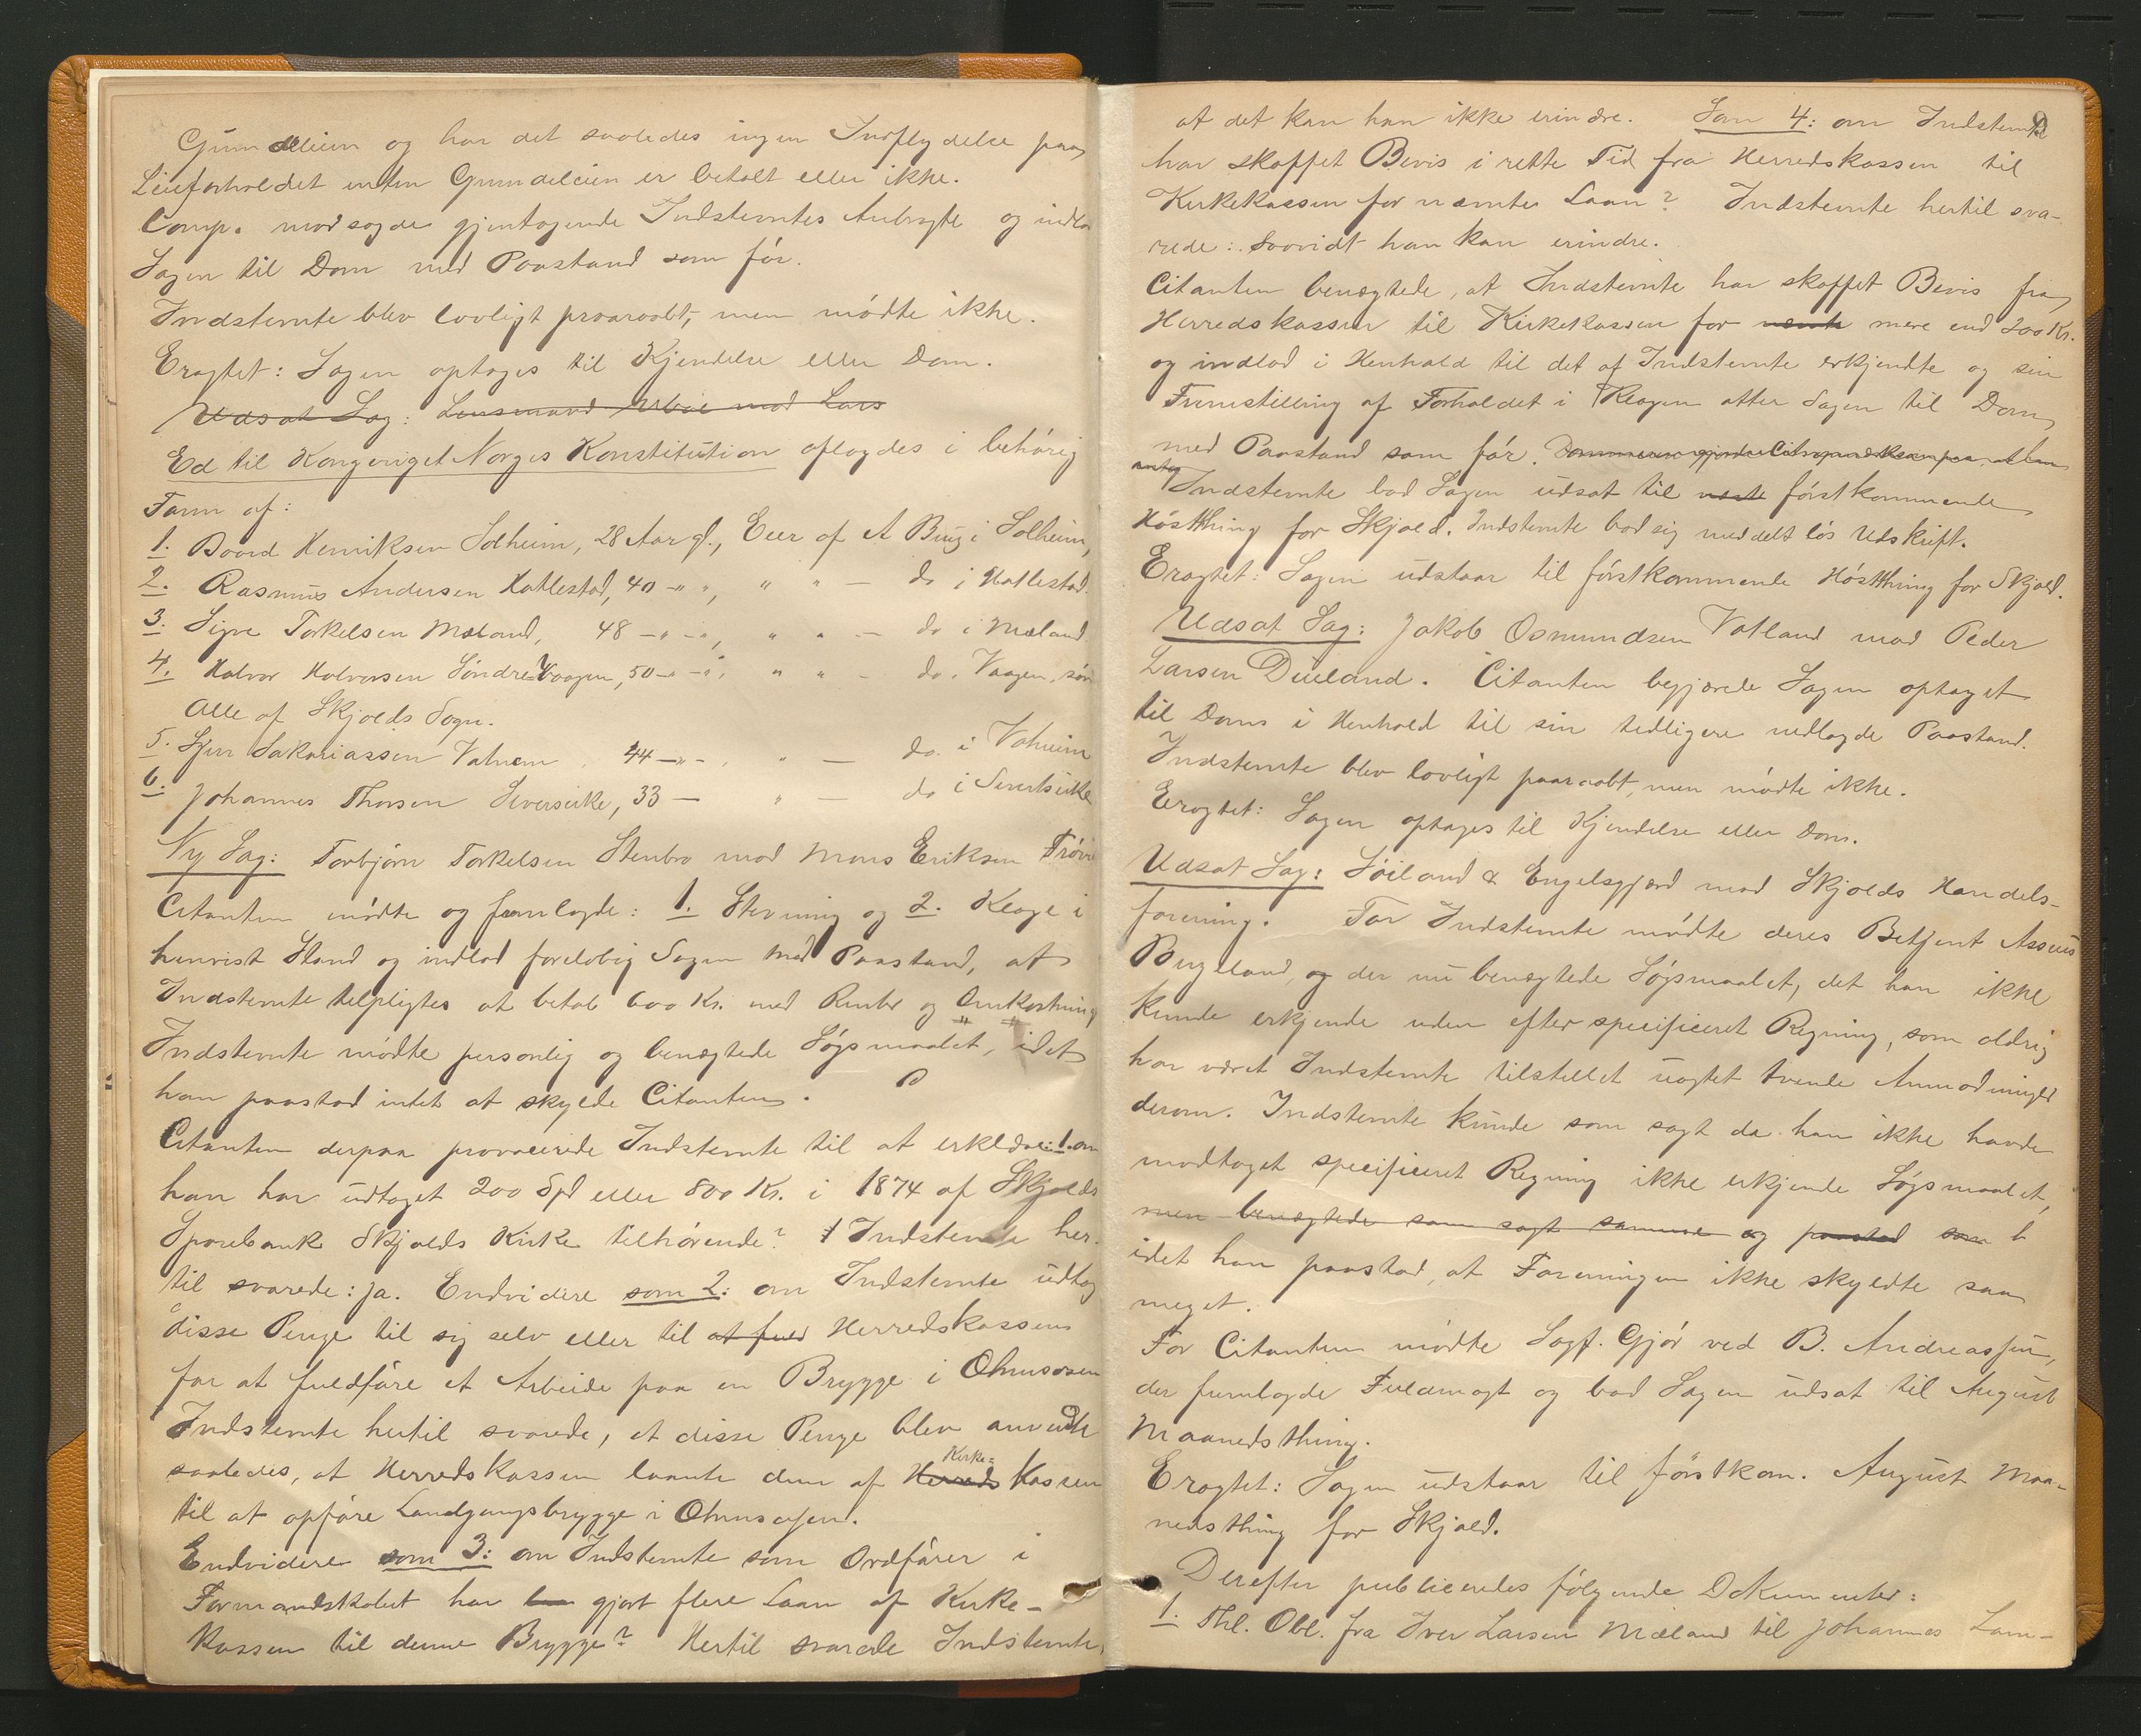 Grundleien og har det saaledes ingen Indflydelse paa
Leieforholdet enten Grundeleien er betalt eller ikke.
Comp. modsagde gjentagende Indstevntes Anbragte og indlod
Sagen til Dom med Paastand som før.
Indstevnte blev lovligt paaraabt, men mødte ikke.
Eragtet: Sagen optages til Kjendelse eller Dom.
Udsat Sag: Lensmand mod Lars
Ed til Kongeriget Norges Konstitution aflagdes i behørig
Form af:
1. Baard Henriksen Solheim, 28 Aar gl., Eier af et Brug i Solheim,
2. Rasmus Andersen Hatlestad, 40 -"-, " " — do i Hatlestad.
3. Sigve Torkelsen Mæland, 48 -"-, " " — do i Mæland
4. Halvor Halvorsen Søndre Vaagen, 50 -"-, " " — do. Vaagen, søn
Alle af Skjolds Sogn.
5. Sjur Sakariassen Vatnem, 44 -"-, " — do. i Vatneim
6. Johannes Thorsen Seversvike, 33 — " — do i Severtsvike
Ny Sag: Torbjørn Torkelsen Stenbro mod Mons Eriksen Frøvi
Citanten mødte og fremlagde: 1. Stevning og 2. Klage i
henvist Stand og indlod foreløbig Sagen med Paastand, at
Indstemte tilpligtes at betale 600 Kr. med Renter og Omkostning
Indstevnte mødte personlig og benægtede Søgsmaalet, idet
han paastod intet at skylde Citanten.
Citanten derpaa provocerede Indstevnte til at erklære: 1. om
han har udtaget 200 Spd eller 800 Kr. i 1874 af Skjolds
Sparebank Skjolds Kirke tilhørende? Indstevnte her-
til svarede: ja. Endvidere som 2: om Indstevnte udtog
disse Penge til sig selv eller til at fuld Herredskassen
for at fuldføre et Arbeide paa en Brygge i Ølensosen
Indstemte hertil svarede, at disse Penge blev anvendte
saaledes, at Herredskassen laante dem af Herreds Kirke-Kassen
til at opføre Landgangsbrygge i Ølensosen.
Endvidere som 3: om Indstevnte som Ordfører i
Formandskabet har gjort flere Laan af Kirke-
Kassen til denne Brygge? Hertil svarede Indstemte,
at det kan han ikke erindre. Som 4: om Indstemte
har skaffet Bevis i rette Tid fra Herredskassen til
Kirkekassen for nævnte Laan? Indstemte hertil sva-
rede: Saavidt han kan erindre.
Citanten benægtede, at Indstevnte har skaffet Bevis fra
Herredskassen til Kirkekassen for nævnte mere end 200 Kr.
og indlod i Henhold til det af Indstemte erkjendte og sin
Fremstilling af Forholdet i Klagen atter Sagen til Dom
med Paastand som før.
Indstemte bad Sagen udsat til næste førstkommende
Høstthing for Skjold. Indstemte bad sig meddelt løs Udskrift.
Eragtet: Sagen udstaar til førstkommende Høstthing for Skjold.
Udsat Sag: Jakob Osmundsen Vatland mod Peder
Larsen Dueland. Citanten begjærede Sagen optaget
til Doms i Henhold til sin tidligere nedlagde Paastand.
Indstemte blev lovligt paaraabt, men mødte ikke.
Eragtet: Sagen optages til Kjendelse eller Dom.
Udsat Sag: Søiland & Engelsgjerd mod Skjolds Handels-
forening. For Indstemte mødte deres Betjent Assuus
Brygland, og der nu benægtede Søgsmaalet, det han ikke
kunde erkjende uden efter specificeret Regning, som aldrig
har været Indstemte tilstillet uagtet tvende Anmodninger
derom. Indstemte kunde som sagt da han ikke havde
modtaget specificeret Regning ikke erkjende Søgsmaalet,
men benægtede som sagt samme og paastod som
idet han paastod, at Foreningen ikke skyldte saa
meget.
For Citanten mødte Sagf. Gjør ved B. Andreassen,
der fremlagde Fuldmagt og bad Sagen udsat til August
Maanedsthing.
Eragtet: Sagen udstaar til førstkom. August Maa-
nedsthing for Skjold.
Derefter publiceredes følgende Dokumenter:
1. Thl. Obl. fra Iver Larsen Mæland til Johannes Lam-